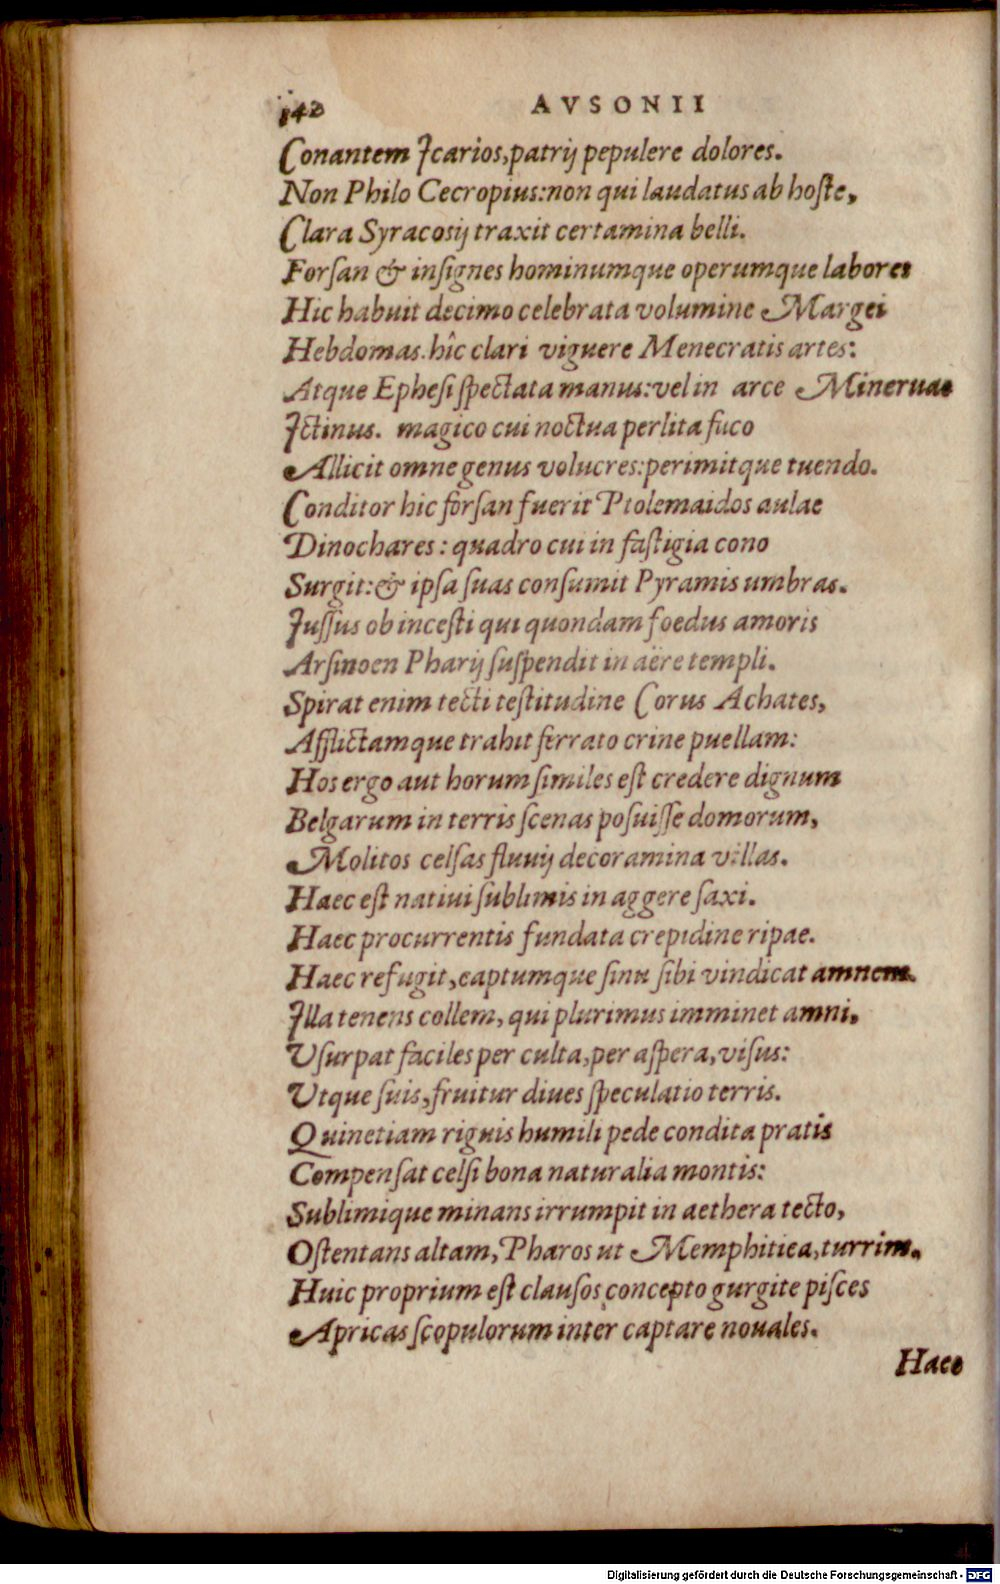 142 AVSONII
Conantem Icarios, patrij pepulere dolores.
Non Philo Cecropius: non qui laudatus ab hoſte,
Clara Syracosij traxit certamina belli.
Forſan & inſignes hominumque operumque labores
Hic habuit decimo celebrata volumine Margei
Hebdomas. hîc clari viguere Menecratis artes:
Atque Epheſi ſpectata manus: vel in arce Mineruae
Ictinus. magico cui noctua perlita fuco
Allicit omne genus volucres: perimitque tuendo.
Conditor hic forſan fuerit Ptolemaidos aulae
Dinochares: quadro cui in faſtigia cono
Surgit: & ipſa ſuas conſumit Pyramis umbras.
Iuſſus ob inceſti qui quondam foedus amoris
Arſinoen Pharij ſuſpendit in aëre templi.
Spirat enim tecti teſtitudine Corus Achates,
Afflictamque trahit ferrato crine puellam:
Hos ergo aut horum ſimiles eſt credere dignum
Belgarum in terris ſcenas poſuiſſe domorum,
Molitos celſas fluuij decoramina villas.
Haec eſt natiui ſublimis in aggere ſaxi.
Haec procurrentis fundata crepidine ripae.
Haec refugit, captumque ſinu ſibi vindicat amnem.
Illa tenens collem, qui plurimus imminet amni,
Vſurpat faciles per culta, per aſpera, viſus:
Vtque ſuis, fruitur diues ſpeculatio terris.
Quinetiam riguis humili pede condita pratis
Compenſat celſi bona naturalia montis:
Sublimique minans irrumpit in aethera tecto,
Oſtentans altam, Pharos ut Memphitica, turrim.
Huic proprium eſt clauſos concepto gurgite piſces
Apricas ſcopulorum inter captare nouales.
Haec
Digitalisierung gefördert durch die Deutsche Forschungsgemeinschaft - DFG